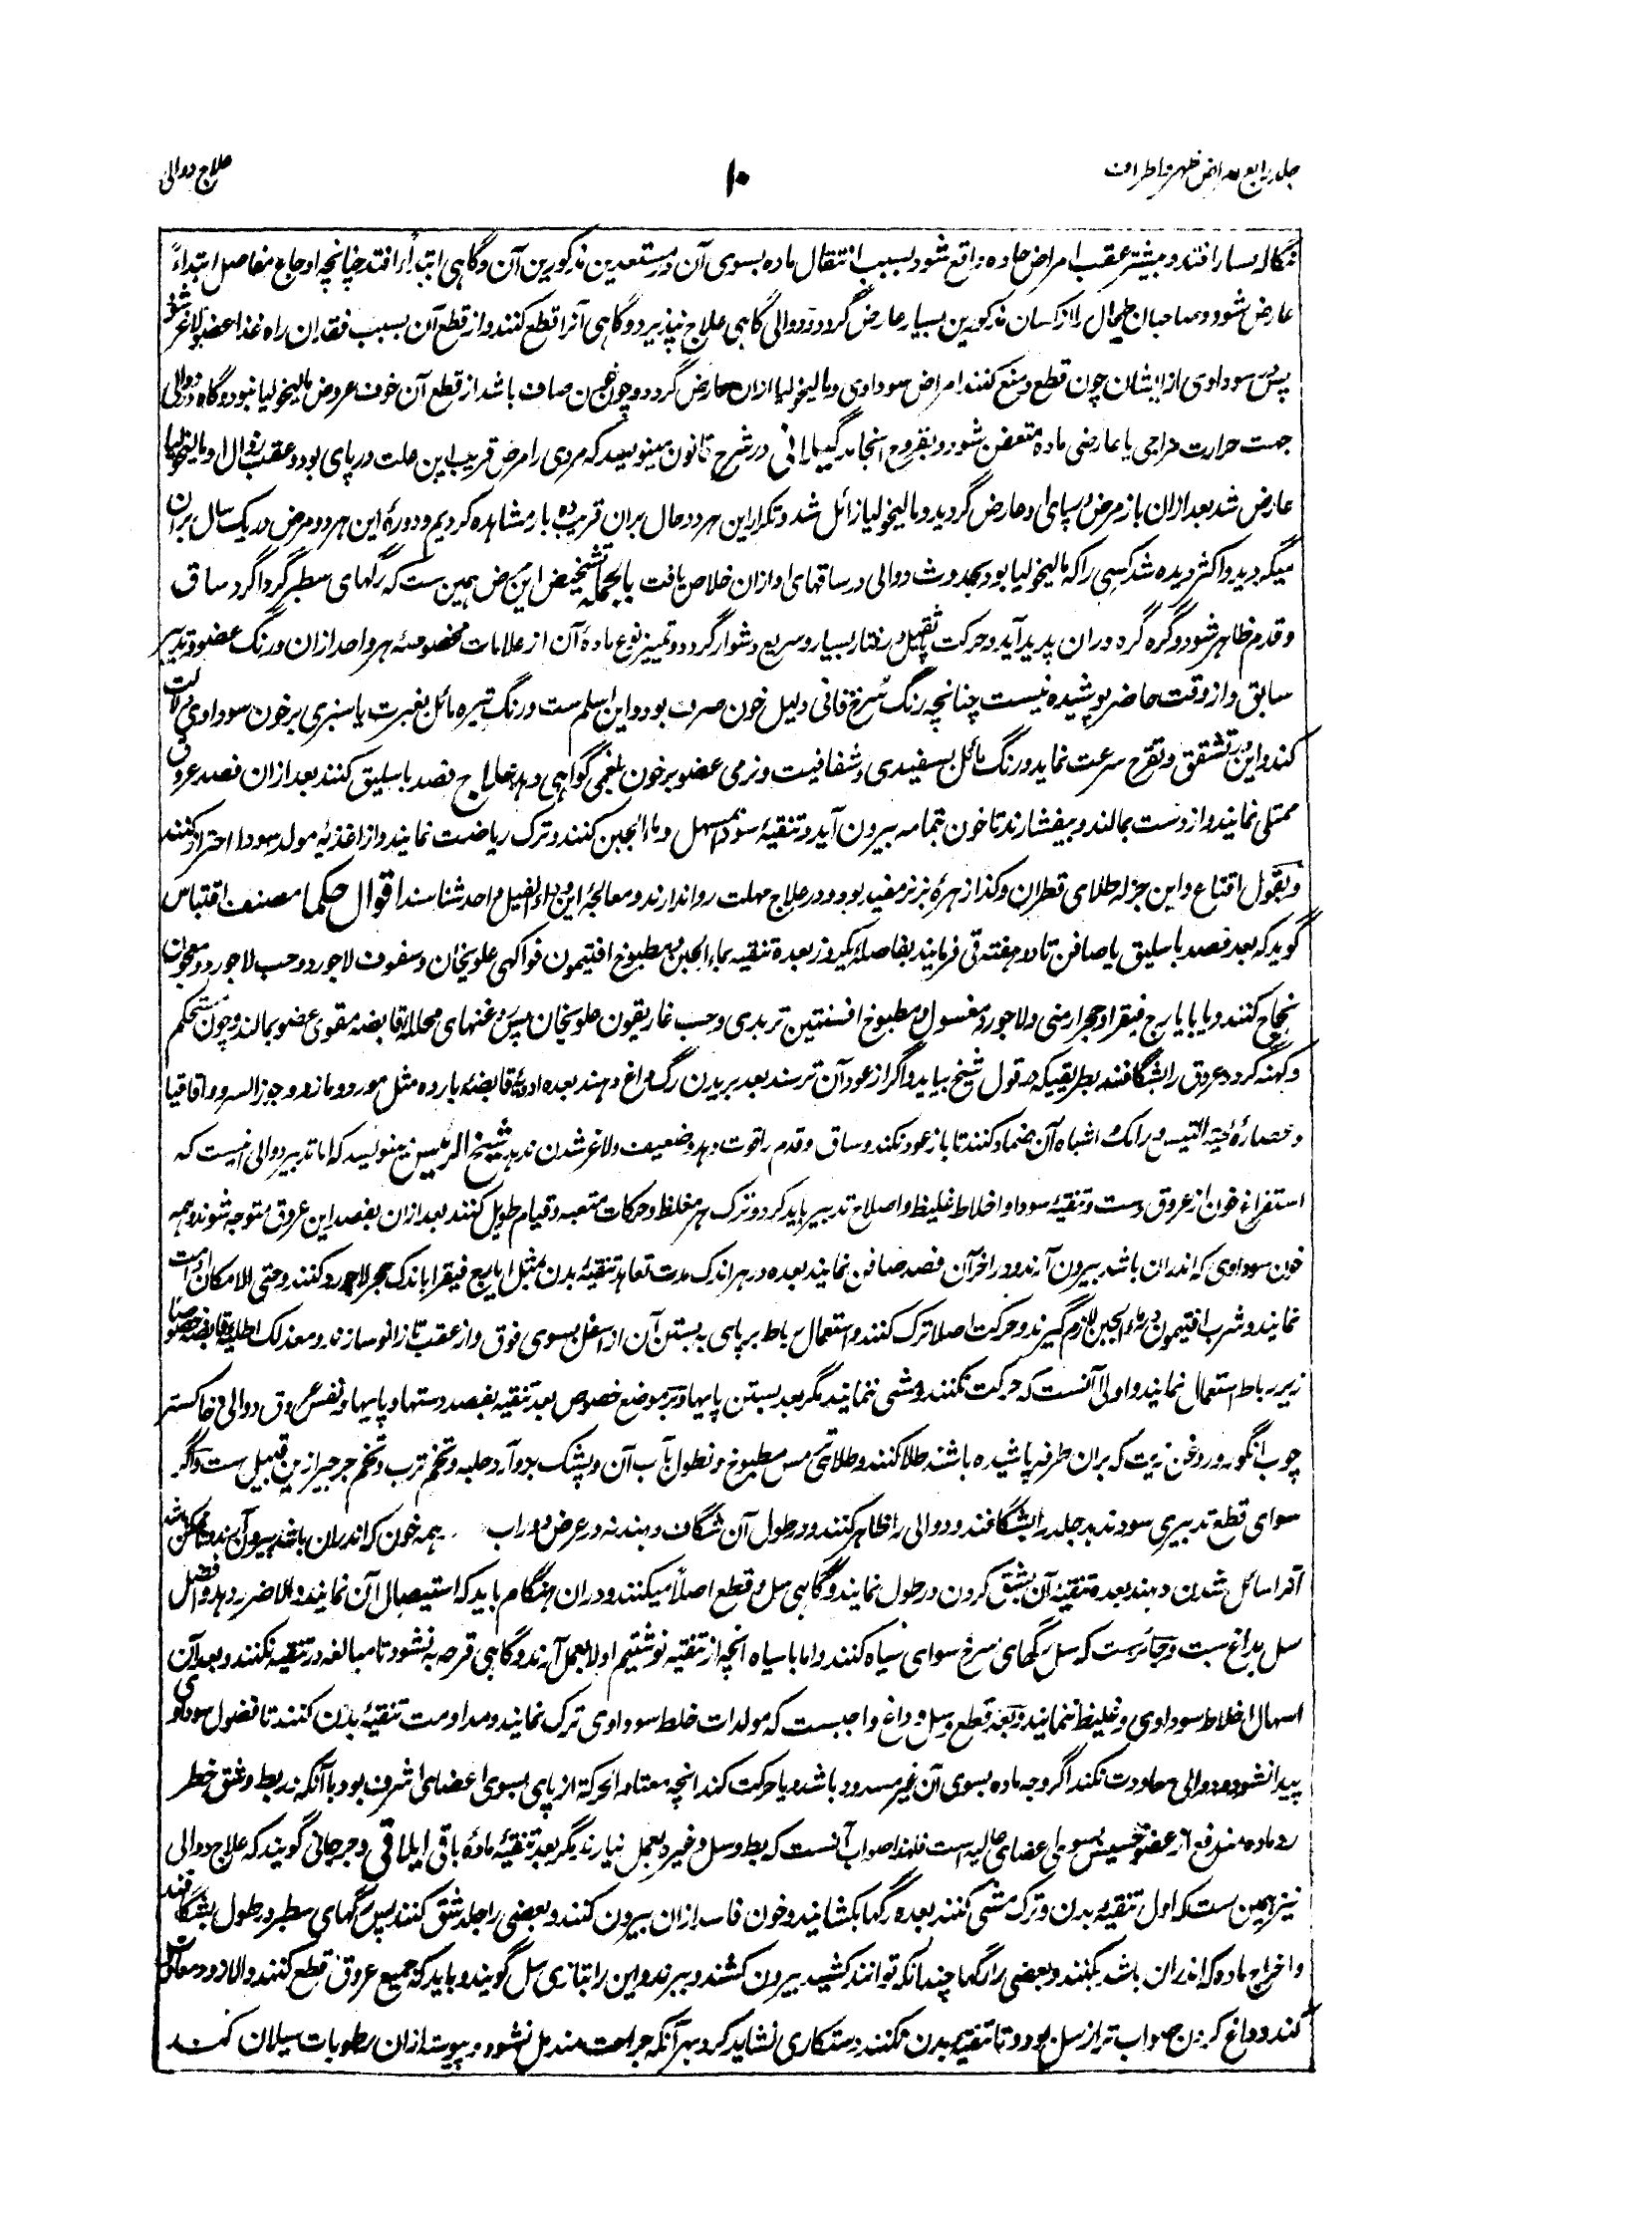 جلد رابع امراض ظهر و اطراف
۱۰
علاج دوالی
بسیار افتد و بیشتر عقب امراض حاده واقع شود بسبب انتقال ماده بسوی آن در مستعدین مذکورین آن و گاهی ابتداءً افتد چنانچه اوجاع مفاصل ابتداءً
عارض شود و صاحبان طحال را از کسان مذکورین بسیار عارض گردد و دوالی گاهی علاج نپذیرد و گاهی آنرا قطع کنند و از قطع آن بسبب فقدان راه غذا عضو لاغر شود
پس سوداوی از ایشان چون قطع و منع کنند امراض سوداوی و مالیخولیا ازان عارض گردد و چون خون صاف باشد از قطع آن خوف عروض مالیخولیا نبود و گاه در دوالی
جهت حرارت مزاجی یا عارضی ماده متعفن شود و بقروح انجامد گیلانی در شرح قانون مینویسد که مردی را مرض قریب این علت در پای بود و عقب زوال او مالیخولیا
عارض شد بعد ازان باز مرض بپای او عارض گردید و مالیخولیا زائل شد و تکرار این هر دو حال بران قریب ده بار مشاهده کردیم و دورهٔ این هر دو مرض در یک سال بران
میگردید و اکثر دیده شد کسی را که مالیخولیا بود بحدوث دوالی در ساقهای او ازان خلاص یافت بالجمله تشخیص این مرض همین ست که رگهای سطبر گرداگرد ساق
و قدم ظاهر شود و گره گره دران پدید آید و حرکت ثقیل و رفتار بسیار و سریع دشوار گردد و تمییز نوع مادهٔ آن از علامات مخصوصهٔ هر واحد ازان و رنگ عضو و تدبیر
سابق و از وقت حاضر پوشیده نیست چنانچه رنگ سُرخ قانی دلیل خون صرف بود و این اسلم ست و رنگ تیره مائل بغبرت یا سبزی بر خون سوداوی دلالت
کند و این در تشقق و تقرح سرعت نماید و رنگ مائل بسفیدی و شفافیت و نرمی عضو بر خون بلغمی گواهی دهد علاج فصد باسلیق کنند بعد ازان فصد عروق
ممتلی نمایند و از دست بمالند و بیفشارند تا خون بتمامه بیرون آید و تنقیهٔ سودا بمسهل و ماء الجبن کنند و ترک ریاضت نمایند و از اغذیهٔ مولد سودا احتراز کنند
و بقول اقناع و ابن جزله طلای قطران و کذا زهرهٔ بز نر مفید بود و در علاج مهلت روا ندارند و معالجهٔ این و داء الفیل واحد شناسند اقوال حکما مصنف اقتباس
گوید که بعد فصد باسلیق یا صافن تا دو هفته قی فرمایند بفاصلهٔ یکروز بعده تنقیه بماء الجبن و مطبوخ افتیمون فواکهی علویخان و سفوف لاجورد و حب لاجورد و معجون
نجاح کنند و یا بایارج فیقرا و حجر ارمنی و لاجورد مغسول و مطبوخ افسنتین تربدی و حب غاریقون علویخان پس روغنهای محلله قابضه مقوی عضو بمالند و چون مستحکم
و کهنه گردد عروق را بشگافند بطریقیکه در قول شیخ بیاید و اگر از عود آن ترسند بعد بریدن رگ داغ دهند بعده ادویهٔ قابضهٔ بارده مثل مورد و مازو و جوز السرو و اقاقیا
و عصارهٔ لحیة التیس و رامک و اشباه آن ضماد کنند تا باز عود نکند و ساق و قدم را قوت دهد و ضعیف و لاغر شدن ندهد شیخ الرئیس مینویسد که اما تدبیر دوالی اینست که
استفراغ خون از عروق دست و تنقیهٔ سودا و اخلاط غلیظ و اصلاح تدبیر باید کرد و ترک هر مغلظ و حرکات متعبه و قیام طویل کنند بعد ازان بفصد این عروق متوجه شوند و همه
خون سوداوی که اندران باشد بیرون آرند و در اخر آن فصد صافن نمایند بعده در هر اندک مدت تعاهد تنقیهٔ بدن مثل ایارج فیقرا باندک حجر لاجورد کنند و حتی الامکان راحت
نمایند و شرب افتیمون در ماء الجبن لازم گیرند و حرکت اصلا ترک کنند و استعمال رباط بر پای به بستن آن از اسفل بسوی فوق و از عقب تا زانو سازند و معذلک اطلیهٔ قابضه خصوصاً
زیر رباط استعمال نمایند و اولی آنست که حرکت نکنند و مشی ننمایند مگر بعد بستن پایها و بر موضع خصوص بعد تنقیه بفصد دستها و پایها و نفس عروق دوالی خاکستر
چوب انگور و روغن زیت که بران طرفه پاشیده باشند طلا کنند و طلای ترمس مطبوخ و نطول بآب آن و پشک بز و آرد حلبه و تخم ترب و تخم جرجیر ازین قبیل ست و اگر
سوای قطع تدبیری سود ندهد جلد را بشگافند و دوالی را ظاهر کنند و در طول آن شگاف دهند نه در عرض و وراب همه خون که اندران باشد بیرون آرند و تا ممکن باشد
آنرا سائل شدن دهند بعده تنقیهٔ آن بشق کردن در طول نمایند و گاهی سل و قطع اصلاً میکنند و دران هنگام باید که استیصال آن نمایند و الا ضرر دهد و افضل
سل بداغ ست و جائز ست که سل رگهای سرخ سوای سیاه کنند و اما با سیاه انچه از تنقیه نوشتیم اولا بعمل آرند و گاهی قرحه به نشود تا مبالغه در تنقیه نکنند و بعد آن
اسهال اخلاط سوداوی و غلیظ ننمایند و بعد قطع و سل و داغ واجبست که مولدات خلط سوداوی ترک نمایند و مداومت تنقیهٔ بدن کنند تا فضول سوداوی
پیدا نشود و دوالی معاودت نکند اگر وجه ماده بسوی آن غیر مسدود باشد و یا حرکت کند انچه معتاد الحرکة از پای بسوی اعضای اشرف بود با آنکه در بط و شق خطر
رد ماده مندفع از عضو خسیس بسوی اعضای عالیه است فلهذا صواب آنست که بط و سل و غیره بعمل نیارند مگر بعد تنقیهٔ مادهٔ باقی ایلاقی و جرجانی گویند که علاج دوالی
نیز همین ست که اول تنقیهٔ بدن و ترک مشی کنند بعده رگها بکشایند و خون فاسد ازان بیرون کنند و بعضی را جلد شق کنند پس رگهای سطبر در طول بشگافند
و اخراج ماده که اندران باشد بکنند و بعضی را رگها چندانکه توانند کشید بیرون کشند و ببرند و این را بتازی سل گویند و باید که جمیع عروق قطع کنند والا زود معاودت
کند و داغ کردن صواب تر از سل بود و تا تنقیه بدن نکنند دستکاری نشاید کرد بهر آنکه جراحت مندمل نشود و پیوسته ازان رطوبات سیلان کند